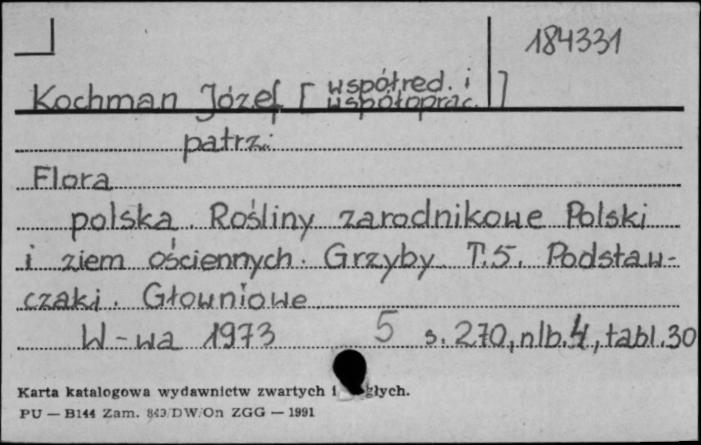 184331
Kochman Józef [współred. i współoprac.]
patrz:
Flora
polska. Rośliny zarodnikowe Polski
i ziem ościennych. Grzyby T.5. Podstaw-
czaki. Głowniowe
W-wa 1973 5 s. 270, nlb. 4, tabl. 30
Karta katalogowa wydawnictw zwartych i głych.
PU — B144 Zam. 843/DW/On ZGG — 1991